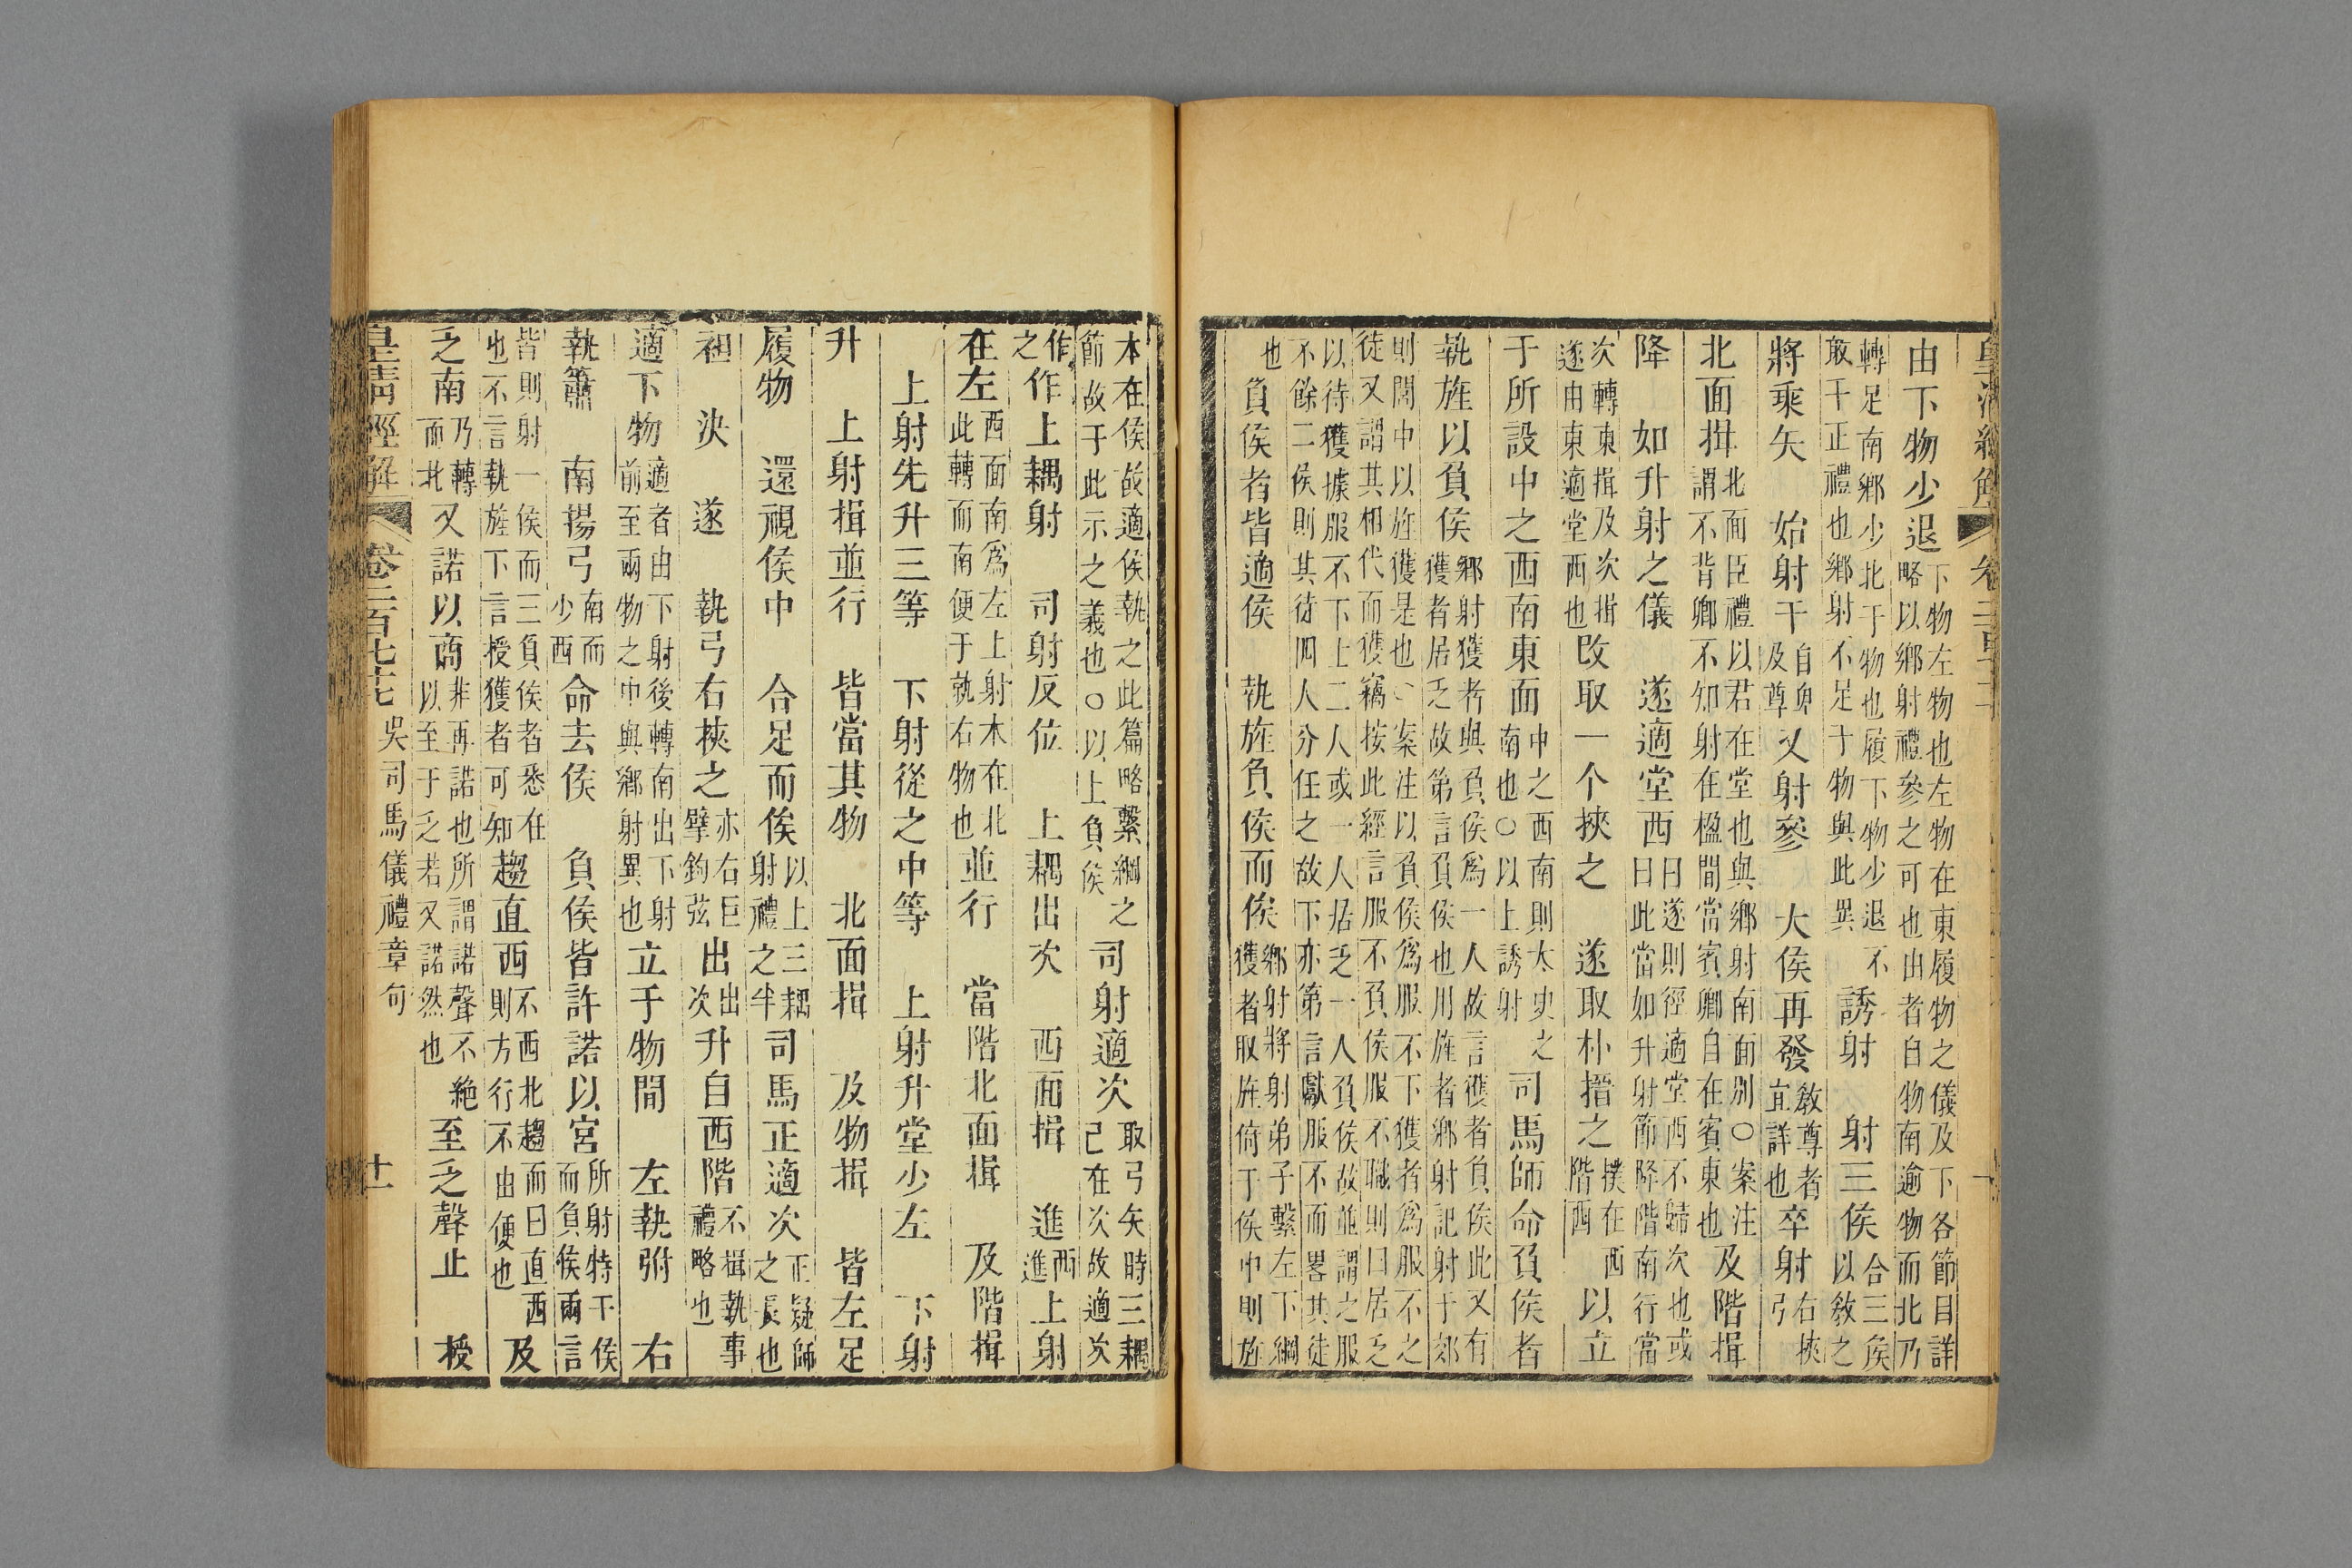 皇清經解
由下物少退下物左物也左物在東履物之儀及下各節目詳略以鄉射禮參之可也由者自物南逾物而北乃
轉足南鄉少北于物也履下物少退不敢干正禮也鄉射不足于物與此異誘射　射三侯合三侯以教之
將乘矢　始射干自卑及尊又射參　大侯再發敘尊者宜詳也卒射右挾弓
北面揖北面臣禮以君在堂也與鄉射南面別○案注謂不背卿不知射在楹間當賓卿自在賓東也及階揖
降　如升射之儀　遂適堂西曰遂則徑適堂西不歸次也或曰此當如升射節降階南行當
次轉東揖及次揖遂由東適堂西也改取一个挾之　遂取朴搢之樸在西階西以立
于所設中之西南東面中之西南則太史之南也○以上誘射司馬師命負侯者
執旌以負侯鄉射獲者與負侯爲一人故言獲者負侯此又有獲者居乏故第言負侯也用旌者鄉射記射于郊
則閭中以旌獲是也○案注以負侯爲服不下獲者爲服不之徒又謂其相代而獲竊按此經言服不負侯服不職則曰居乏
以待獲據服不下士二人或一人居乏一人負侯故並謂之服不餘二侯則其徒四人分任之故下亦第言獻服不而畧其徒
也負侯者皆適侯　執旌負侯而俟鄉射將射弟子繫左下綱獲者取旌倚于侯中則旌
本在侯故適侯執之此篇略繫綱之節故于此示之義也○以上負侯司射適次取弓矢時三耦已在次故適次
作之作上耦射　司射反位　上耦出次　西面揖　進西進上射
在左西面南爲左上射本在北此轉而南便于就右物也並行　當階北面揖　及階揖
上射先升三等　下射從之中等　上射升堂少左　下射
升　上射揖並行　皆當其物　北面揖　及物揖　皆左足
履物　還視侯中　合足而俟以上三耦射禮之半司馬正適次正疑師之長也
袒　決　遂　執弓右挾之亦右巨擘鉤弦出出次升自西階不揖執事禮略也
適下物適者由下射後轉南出下射前至兩物之中與鄉射異也立于物間　左執弣　右
執簫　南揚弓南而少西命去侯　負侯皆許諾以宮所射特干侯而負侯兩言
皆則射一侯而三負侯者悉在也不言執旌下言授獲者可知趨直西不西北趨而曰直西則方行不由便也及
乏南乃轉而北又諾以商非再諾也所謂諾聲不絶以至于乏若又諾然也至乏聲止　授
皇清經解　卷二百七十　吳司馬儀禮章句　十一